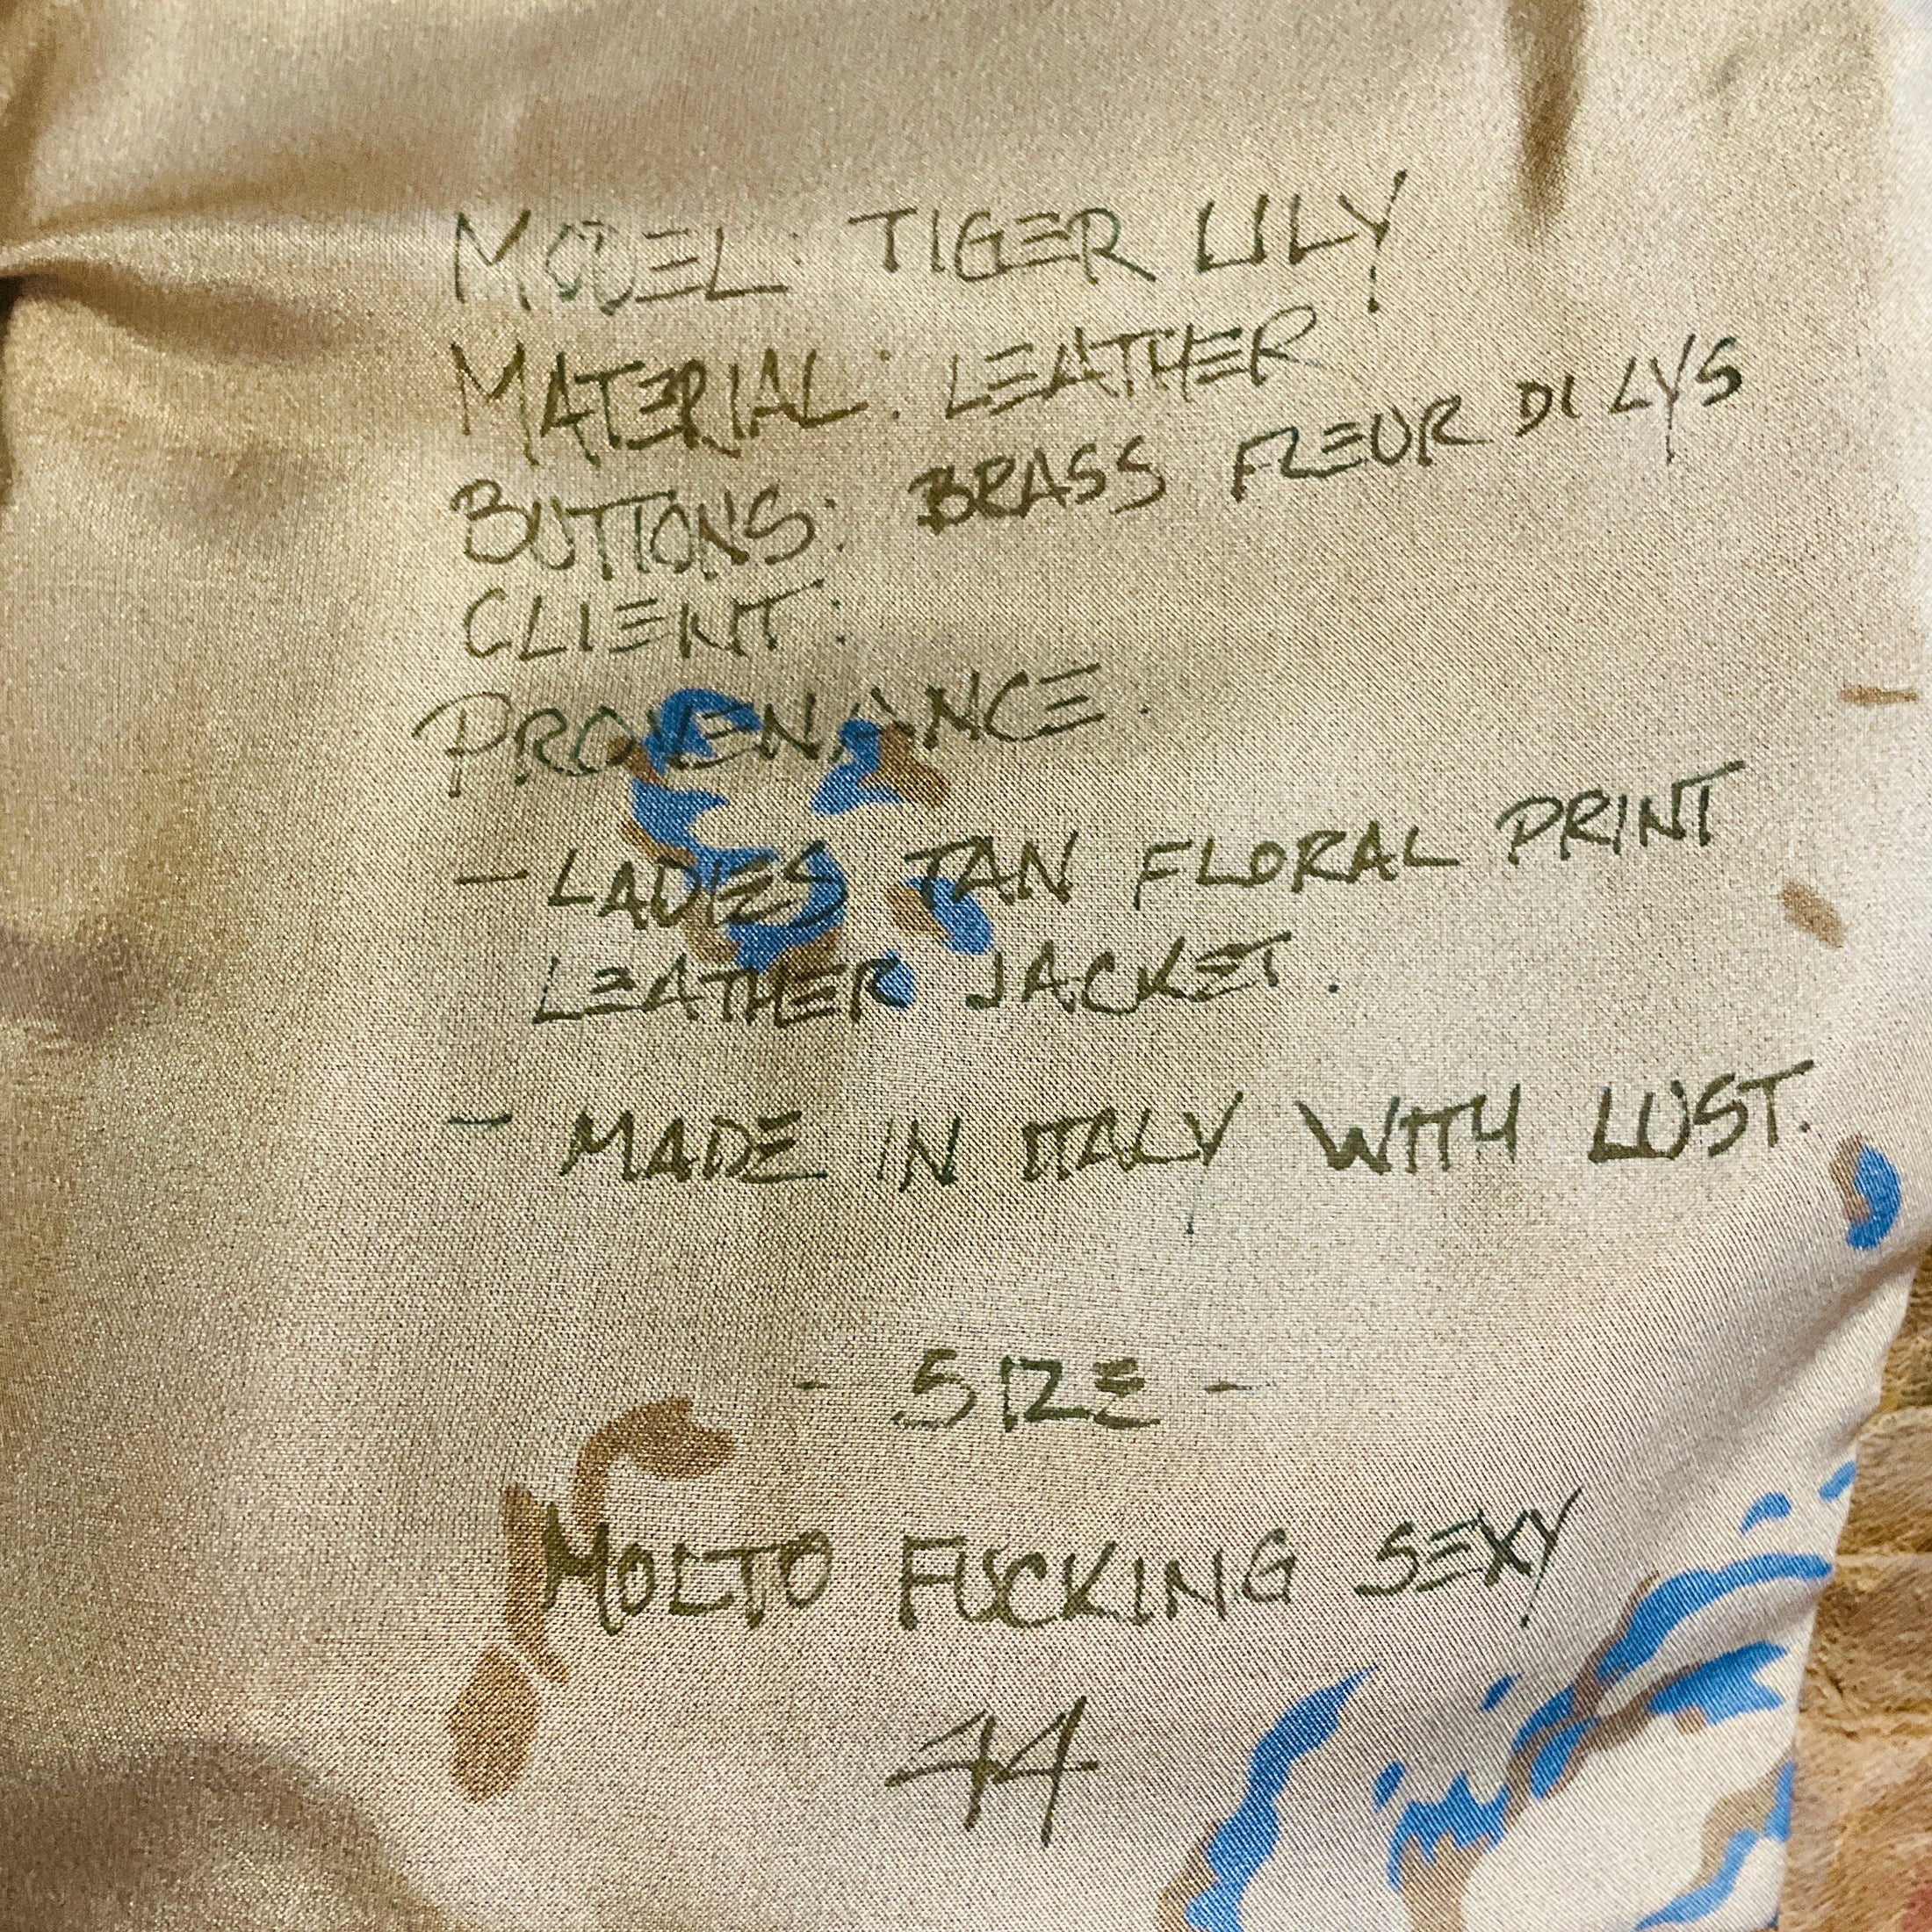 MODEL: TIGER LILY
MATERIAL: LEATHER
BUTTONS: BRASS FLEUR DI LYS
CLIENT:
PROVENANCE:
- LADIES TAN FLORAL PRINT
LEATHER JACKET.
- MADE IN ITALY WITH LUST.
- SIZE -
MOLTO FUCKING SEXY
44